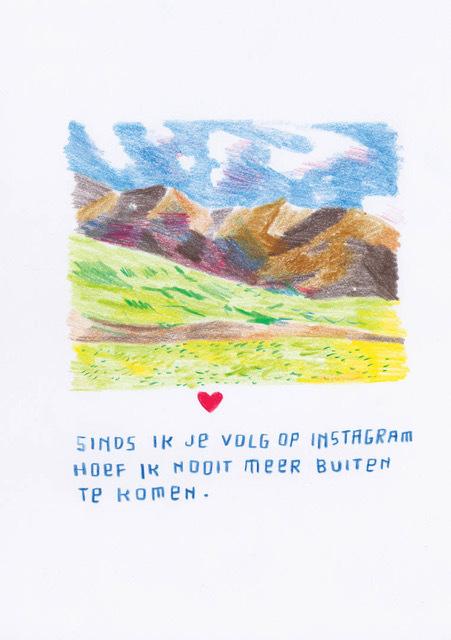 SINDS IK JE VOLG OP INSTAGRAM
HOEF IK NOOIT MEER BUITEN
TE KOMEN.